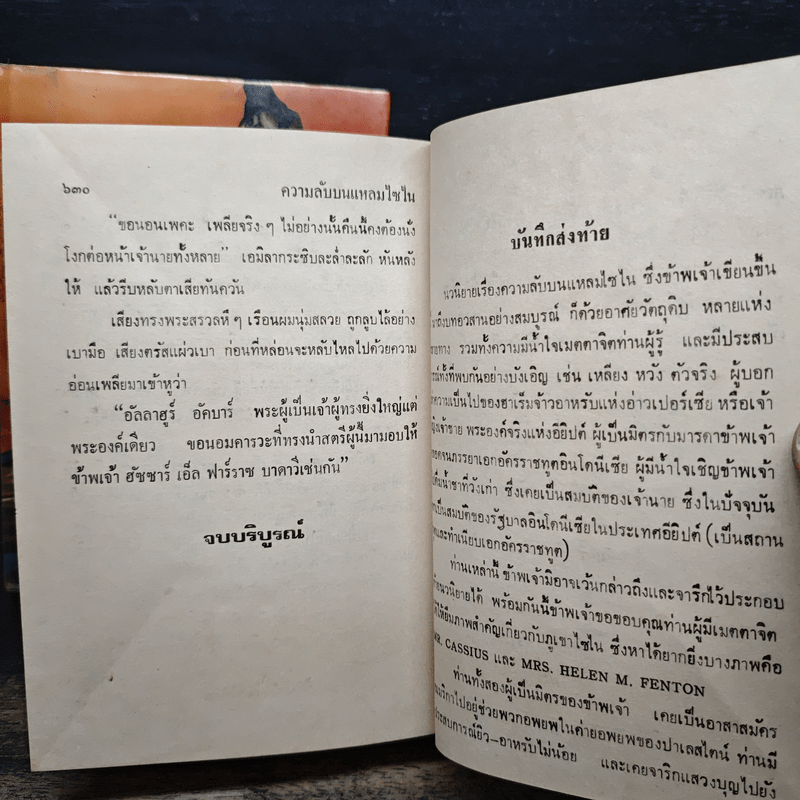 ๖๓๐ ความลับบนแหลมไซไน
“ขอนอนเพคะ เพลียจริง ๆ ไม่อย่างนั้นคืนนี้คงต้องนั่ง
โงกต่อหน้าเจ้านายทั้งหลาย” เอมิลากระซิบละล่ำละลัก หันหลัง
ให้ แล้วรีบหลับตาเสียทันควัน
เสียงทรงพระสรวลหึ ๆ เรือนผมนุ่มสลวย ถูกลูบไล้อย่าง
เบามือ เสียงตรัสแผ่วเบา ก่อนที่หล่อนจะหลับไหลไปด้วยความ
อ่อนเพลียมาเข้าหูว่า
“อัลลาฮูร์ อัคบาร์ พระผู้เป็นเจ้าผู้ทรงยิ่งใหญ่แต่
พระองค์เดียว ขอนอมคารวะที่ทรงนำสตรีผู้นี้มามอบให้
ข้าพเจ้า ฮัซซาร์ เอ็ล ฟาร์ราช บาดาวีเช่นกัน”
จบบริบูรณ์
บันทึกส่งท้าย
นวนิยายเรื่องความลับบนแหลมไซไน ซึ่งข้าพเจ้าเขียนขึ้น
บทอวสานอย่างสมบูรณ์ ก็ด้วยอาศัยวัตถุดิบ หลายแห่ง
รวมทั้งความมีน้ำใจเมตตาจิตท่านผู้รู้ และมีประสบ
ทั้งที่พบกันอย่างบังเอิญ เช่น เหลียง หวัง ตัวจริง ผู้บอก
ความเป็นไปของฮาเร็มจ้าวอาหรับแห่งอ่าวเปอร์เซีย หรือเจ้า
เจ้าชาย พระองค์จริงแห่งอียิปต์ ผู้เป็นมิตรกับมารดาข้าพเจ้า
ภรรยาเอกอัครราชทูตอินโดนีเซีย ผู้มีน้ำใจเชิญข้าพเจ้า
น้ำชาที่วังเก่า ซึ่งเคยเป็นสมบัติของเจ้านาย ซึ่งในปัจจุบัน
เป็นสมบัติของรัฐบาลอินโดนีเซียในประเทศอียิปต์ (เป็นสถาน
และทำเนียบเอกอัครราชทูต)
ท่านเหล่านี้ ข้าพเจ้ามิอาจเว้นกล่าวถึงและจารึกไว้ประกอบ
นวนิยายได้ พร้อมกันนี้ข้าพเจ้าขอขอบคุณท่านผู้มีเมตตาจิต
ให้ยืมภาพสำคัญเกี่ยวกับภูเขาไซไน ซึ่งหาได้ยากยิ่งบางภาพคือ
MR. CASSIUS และ MRS. HELEN M. FENTON
ท่านทั้งสองผู้เป็นมิตรของข้าพเจ้า เคยเป็นอาสาสมัคร
ไปอยู่ช่วยพวกอพยพในค่ายอพยพของปาเลสไตน์ ท่านมี
ประสบการณ์ยิว–อาหรับไม่น้อย และเคยจาริกแสวงบุญไปยัง